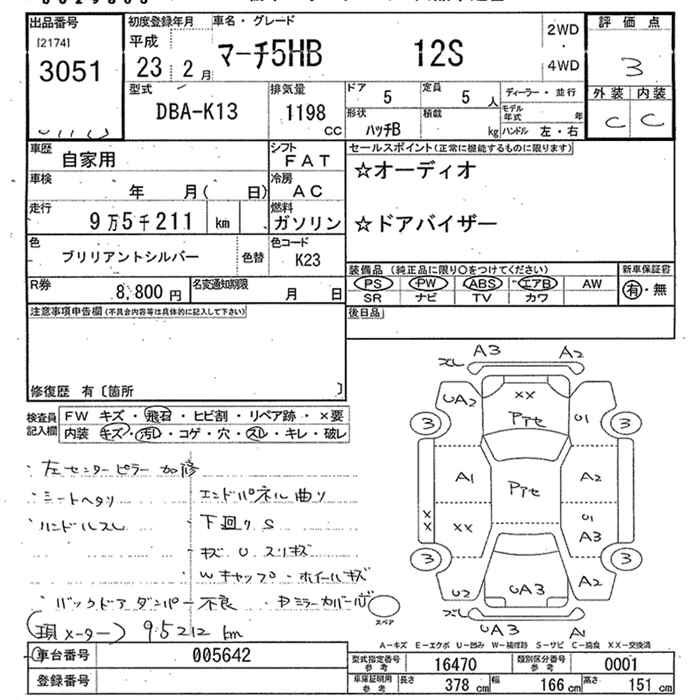 出品番号 初度登録年月 車名・グレード 評価点
[2174] 平成 マーチ5HB 12S 2WD
3051 23 2月 ・ 3
4WD
型式 排気量 ドア 5 定員 5人 ディーラー・並行 外装 内装
DBA-K13 1198 CC 形状 ハッチB 積載 kg モデル年式 年 C C
ハンドル 左・右
車歴 自家用 シフト FAT セールスポイント(正常に機能するものに限ります)
車検 年 月( 日) 冷房 AC ☆オーディオ
走行 9万5千211 km 燃料 ガソリン ☆ドアバイザー
色 ブリリアントシルバー 色替 色コード K23
装備品(純正品に限り○をつけてください) 新車保証書
R券 8,800円 名変通知期限 月 日 PS PW ABS エアB AW 有・無
SR ナビ TV カワ
注意事項申告欄(不具合内容等は具体的に記入して下さい) 後日品
修復歴 有〔箇所 〕
検査員 FW キズ・飛石・ヒビ割・リペア跡・×要
記入欄 内装 キズ・汚レ・コゲ・穴・スレ・キレ・破レ
・左センターピラー加修
・シートヘタリ エンドパネル曲リ
・ハンドルスレ 下廻りS
・キズ U スリキズ
Wキャップ・ホイルキズ
・バックドアダンパー不良
(現メーター) 95212 km
スペア
A3 A2
UA2 XX U1
3 アアセ 3
A1 アアセ A2
XX XX U1
A3
3 3
U2 UA3 A2
UA3 A1
A-キズ E-エクボ U-凹み W-補修跡 S-サビ C-腐食 XX-交換済
車台番号 005642 型式指定番号 参考 16470 類別区分番号 参考 0001
登録番号 車庫証明用 参考 長さ 378cm 幅 166cm 高さ 151cm